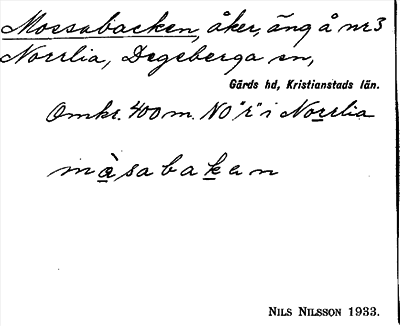 Mossabacken, åker, äng å nr 3
Norrlia, Degeberga sn,
Gärds hd, Kristianstads län.
Omkr. 400 m. NO "r" i Norrlia
måsabaken
NILS NILSSON 1933.